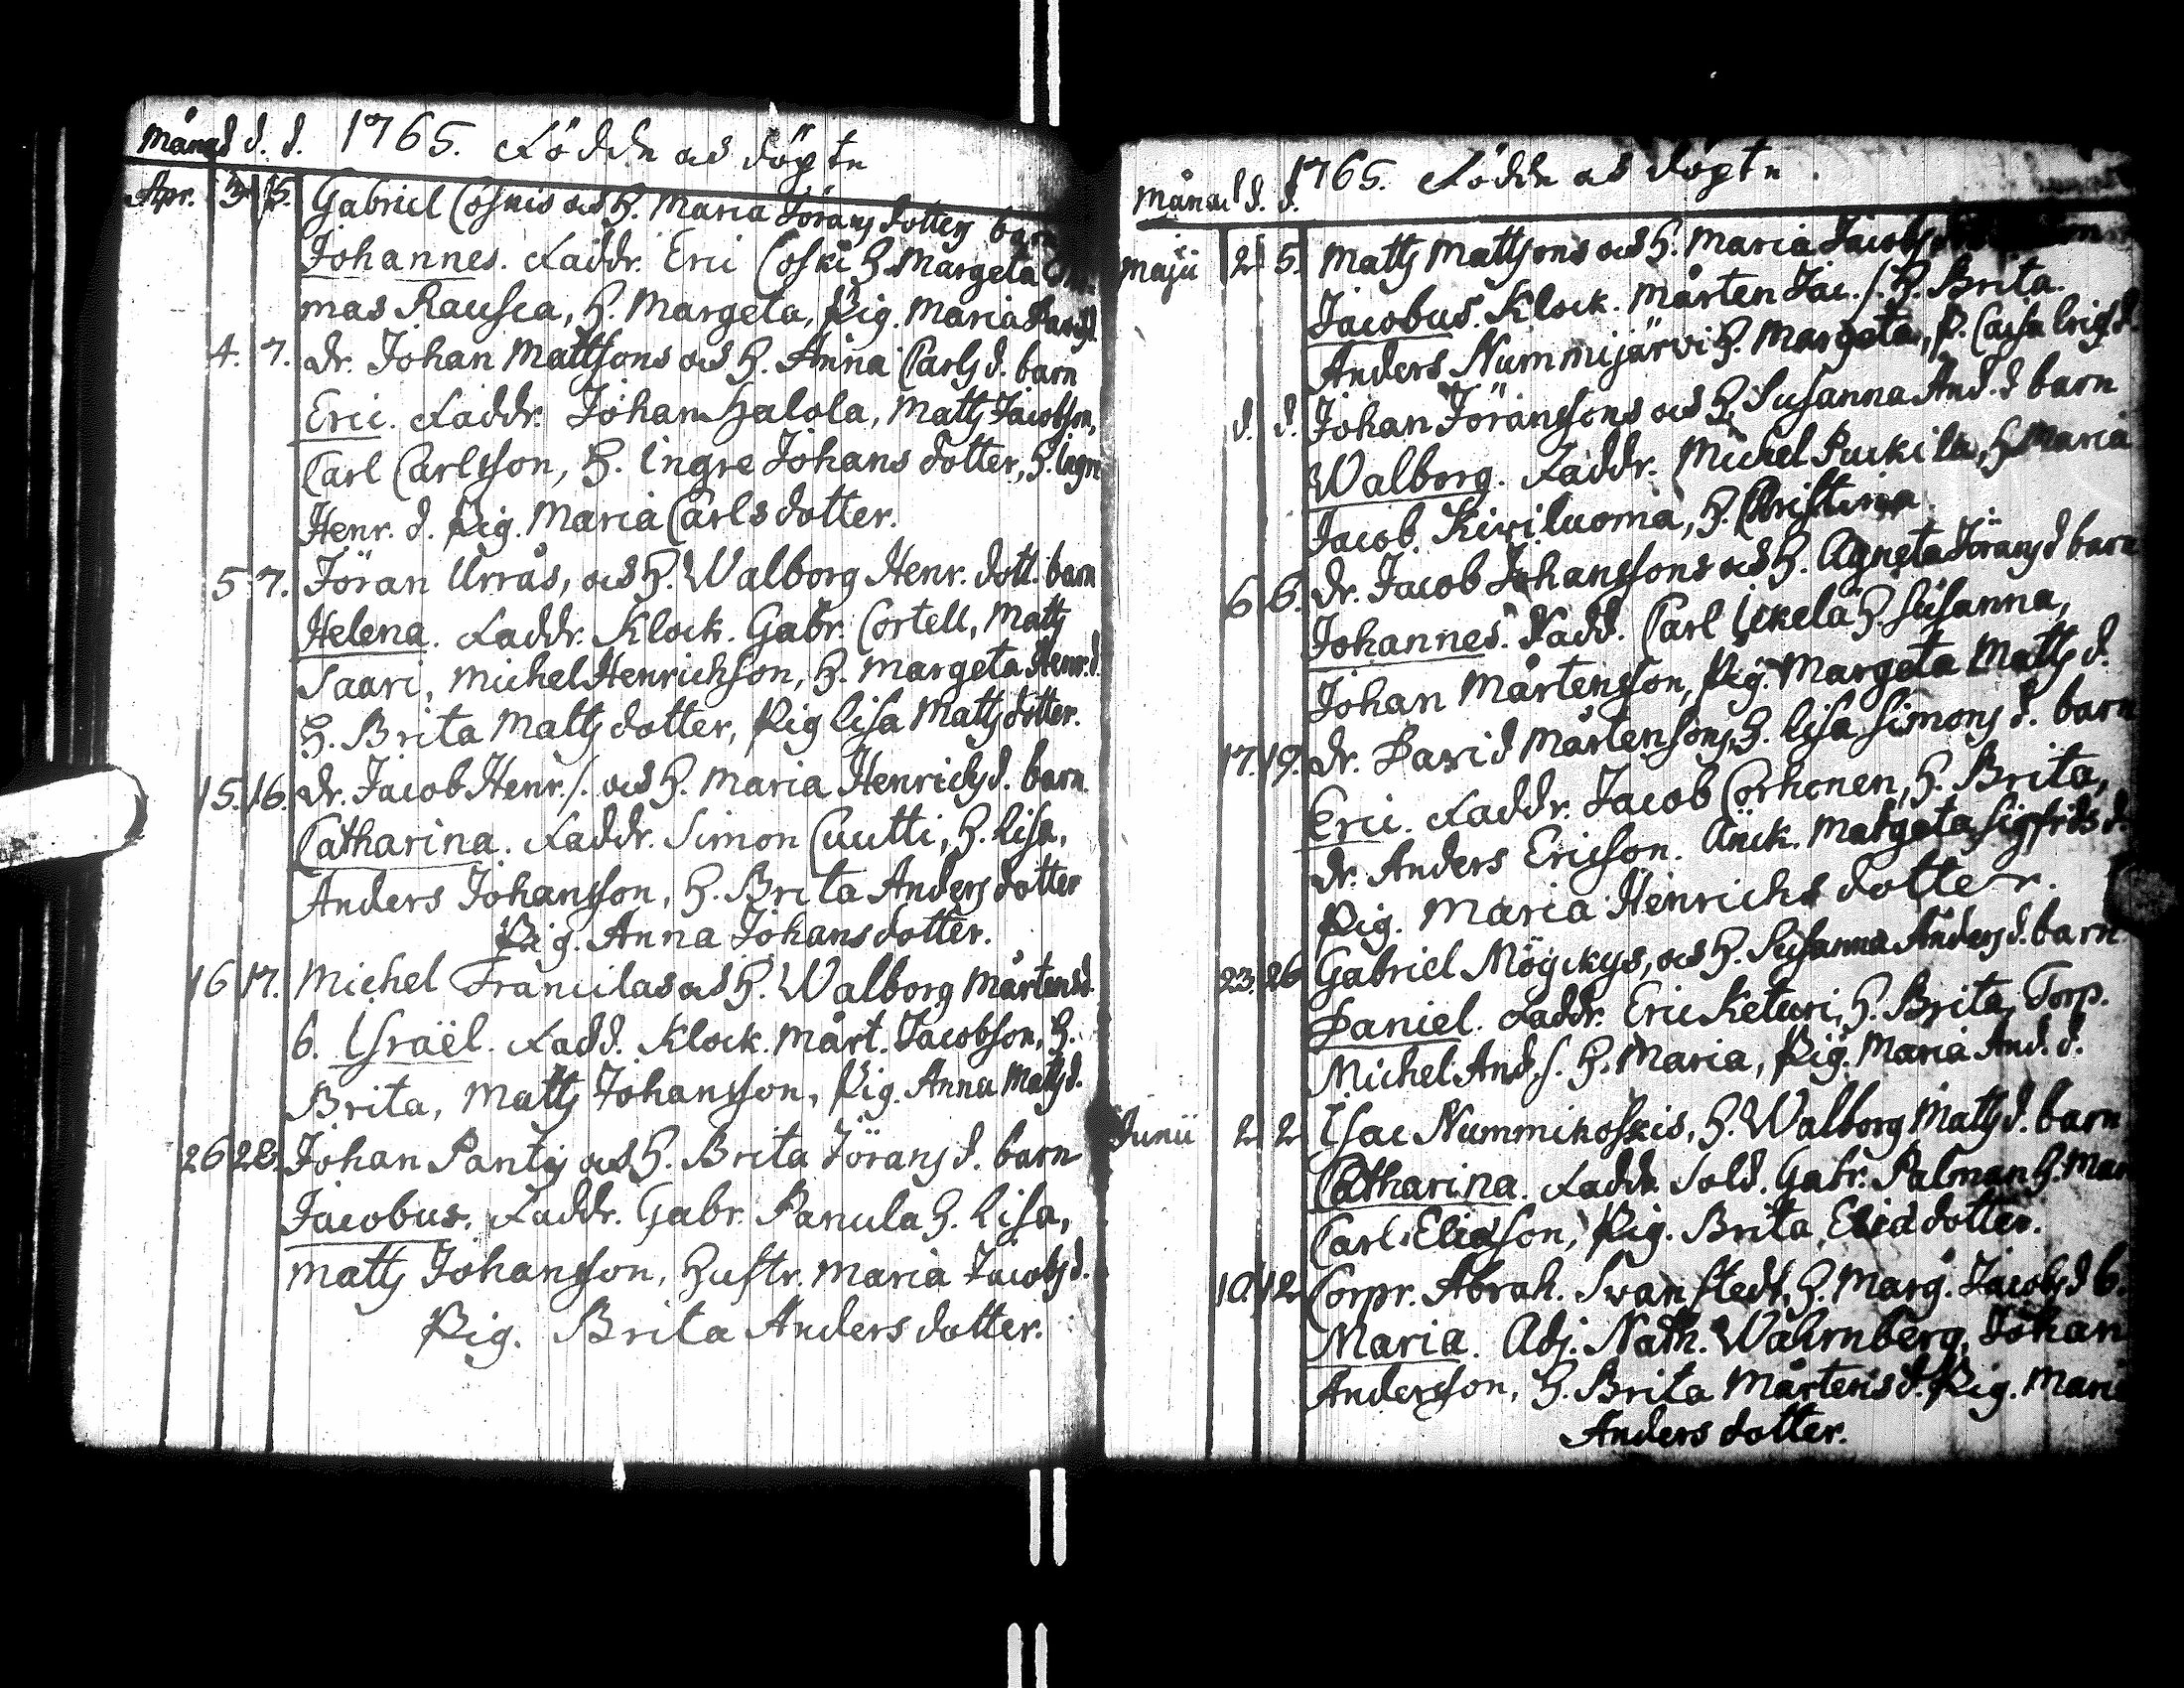 Månad d. d. 1765. Födde och döpte
Apr. 3 5. Gabriel Coskis och H. Maria Jörans dotters barn
Johannes. Faddr. Eric Coski H. Margeta
mas Rausca, H. Margeta, Pig. Maria
4. 7. Dr. Johan Mattssons och H. Anna Carls d. barn
Eric. Faddr. Johan Halola, Matts Jacobson,
Carl Carlsson, H. Ingre Johans dotter, H. Ingr
Henr. d. Pig. Maria Carls dotter.
5 7. Jöran Urrås, och H. Walborg Henr. dott. barn
Helena. Faddr. Klock. Gabr. Cortell, Matts
Saari, Michel Henrichson, H. Margeta Henr. d.
H. Brita Matts dotter, Pig Lisa Matts dotter.
15. 16. Dr. Jacob Henr. s. och H. Maria Henrichs d. barn
Catharina. Faddr. Simon Cuutti, H. Lisa,
Anders Johansson, H. Brita Anders dotter
Pig. Anna Johans dotter.
16 17. Michel Francilas och H. Walborg Mårtens d.
b. Israël. Fadd. Klock. Mårt. Jacobson, H.
Brita, Matts Johansson, Pig. Anna Mats d.
26 28. Johan Pantis och H. Brita Jörans d. barn
Jacobus. Faddr. Gabr. Panula H. Lisa,
Matts Johansson, Hustr. Maria Jacobs d.
Pig. Brita Anders dotter.
Månad d. d. 1765. Födde och döpte.
Maji 2 5. Matts Mattsons och H. Maria Jacobs
Jacobus. Klock. Mårten Jac. s. H. Brita.
Anders Nummijärvi H. Margeta, P. Caisa Erics d.
d. d. Johan Jöranssons och H. Susanna And. d barn
Walborg. Faddr. Michel Puckila, H Maria
Jacob Kiviluoma, H. Christina.
6 6. Dr. Jacob Johanssons och H. Agneta Jörans d barn
Johannes. Fadd. Carl Ickelä H. Susanna,
Johan Mårtensson, Pig. Margeta Matts d.
17. 19. Dr. David Mårtensons, H. Lisa Simons d. barn
Eric. Faddr. Jacob Corhonen, H. Brita,
Dr. Anders Ericson. Änck. Margeta Sigfrids d.
Pig. Maria Henrichs dotter.
23. 26 Gabriel Möyckys, och H. Susanna Anders d. barn
Daniel. Faddr. Eric Keturi, H. Brita, Torp.
Michel And. s. H. Maria, Pig. Maria And. d.
Junii 2 2 Isac Nummikoskis, H. Walborg Matts d. barn
Catharina. Faddr. Sold. Gabr. Palman H. Mar
Carl Eliasson, Pig. Brita Elia dotter.
10. 12 Corpr. Abrah. Svanstedt, H. Marg. Jacobs d b.
Maria. Adj. Nath. Wahrnberg, Johan
Andersson, H. Brita Mårtens d. Pig. Mari
Anders dotter.